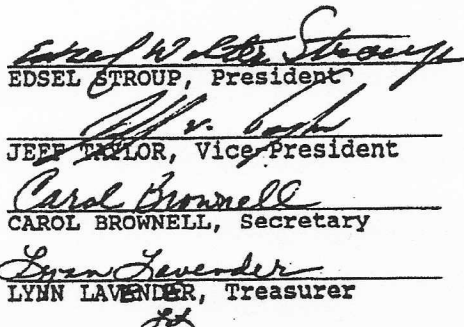 Edsel Walter Stroup
EDSEL STROUP, President
JEFF TAYLOR, Vice-President
Carol Brownell
CAROL BROWNELL, Secretary
Lynn Lavender
LYNN LAVENDER, Treasurer